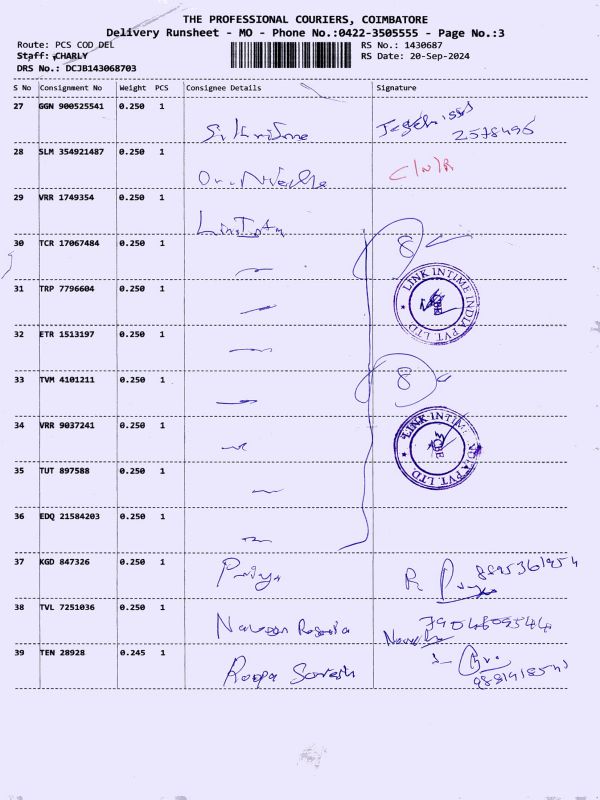 THE PROFESSIONAL COURIERS, COIMBATORE
Delivery Runsheet - MO - Phone No.:0422-3505555 - Page No.:3
Route: PCS COD DEL RS No.: 1430687
Staff: CHARLY RS Date: 20-Sep-2024
DRS No.: DCJB143068703
S No Consignment No Weight PCS Consignee Details Signature
27 GGN 900525541 0.250 1
2578496
28 SLM 354921487 0.250 1
29 VRR 1749354 0.250 1
30 TCR 17067484 0.250 1 8
LINK INTIME INDIA PVT. LTD
31 TRP 7796604 0.250 1
32 ETR 1513197 0.250 1
33 TVM 4101211 0.250 1 8
LINK INTIME INDIA PVT. LTD
34 VRR 9037241 0.250 1
35 TUT 897588 0.250 1
36 EDQ 21584203 0.250 1
37 KGD 847326 0.250 1 Priya R
38 TVL 7251036 0.250 1 Naveen
39 TEN 28928 0.245 1 Roopa Suresh